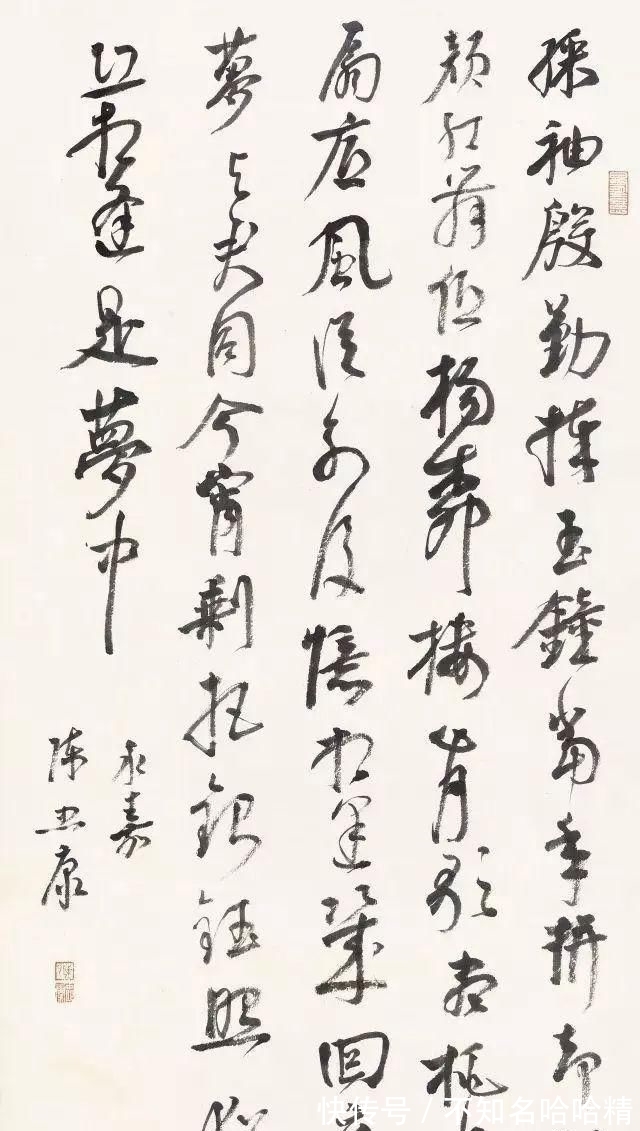 綵袖殷勤捧玉鐘當年拚却
顏紅舞低楊柳樓心月歌盡桃
扇底風從別後憶相逢幾回
夢与君同今宵剩把銀釭照猶
恐相逢是夢中
永嘉
陳忠康
快传号 / 不知名哈哈精